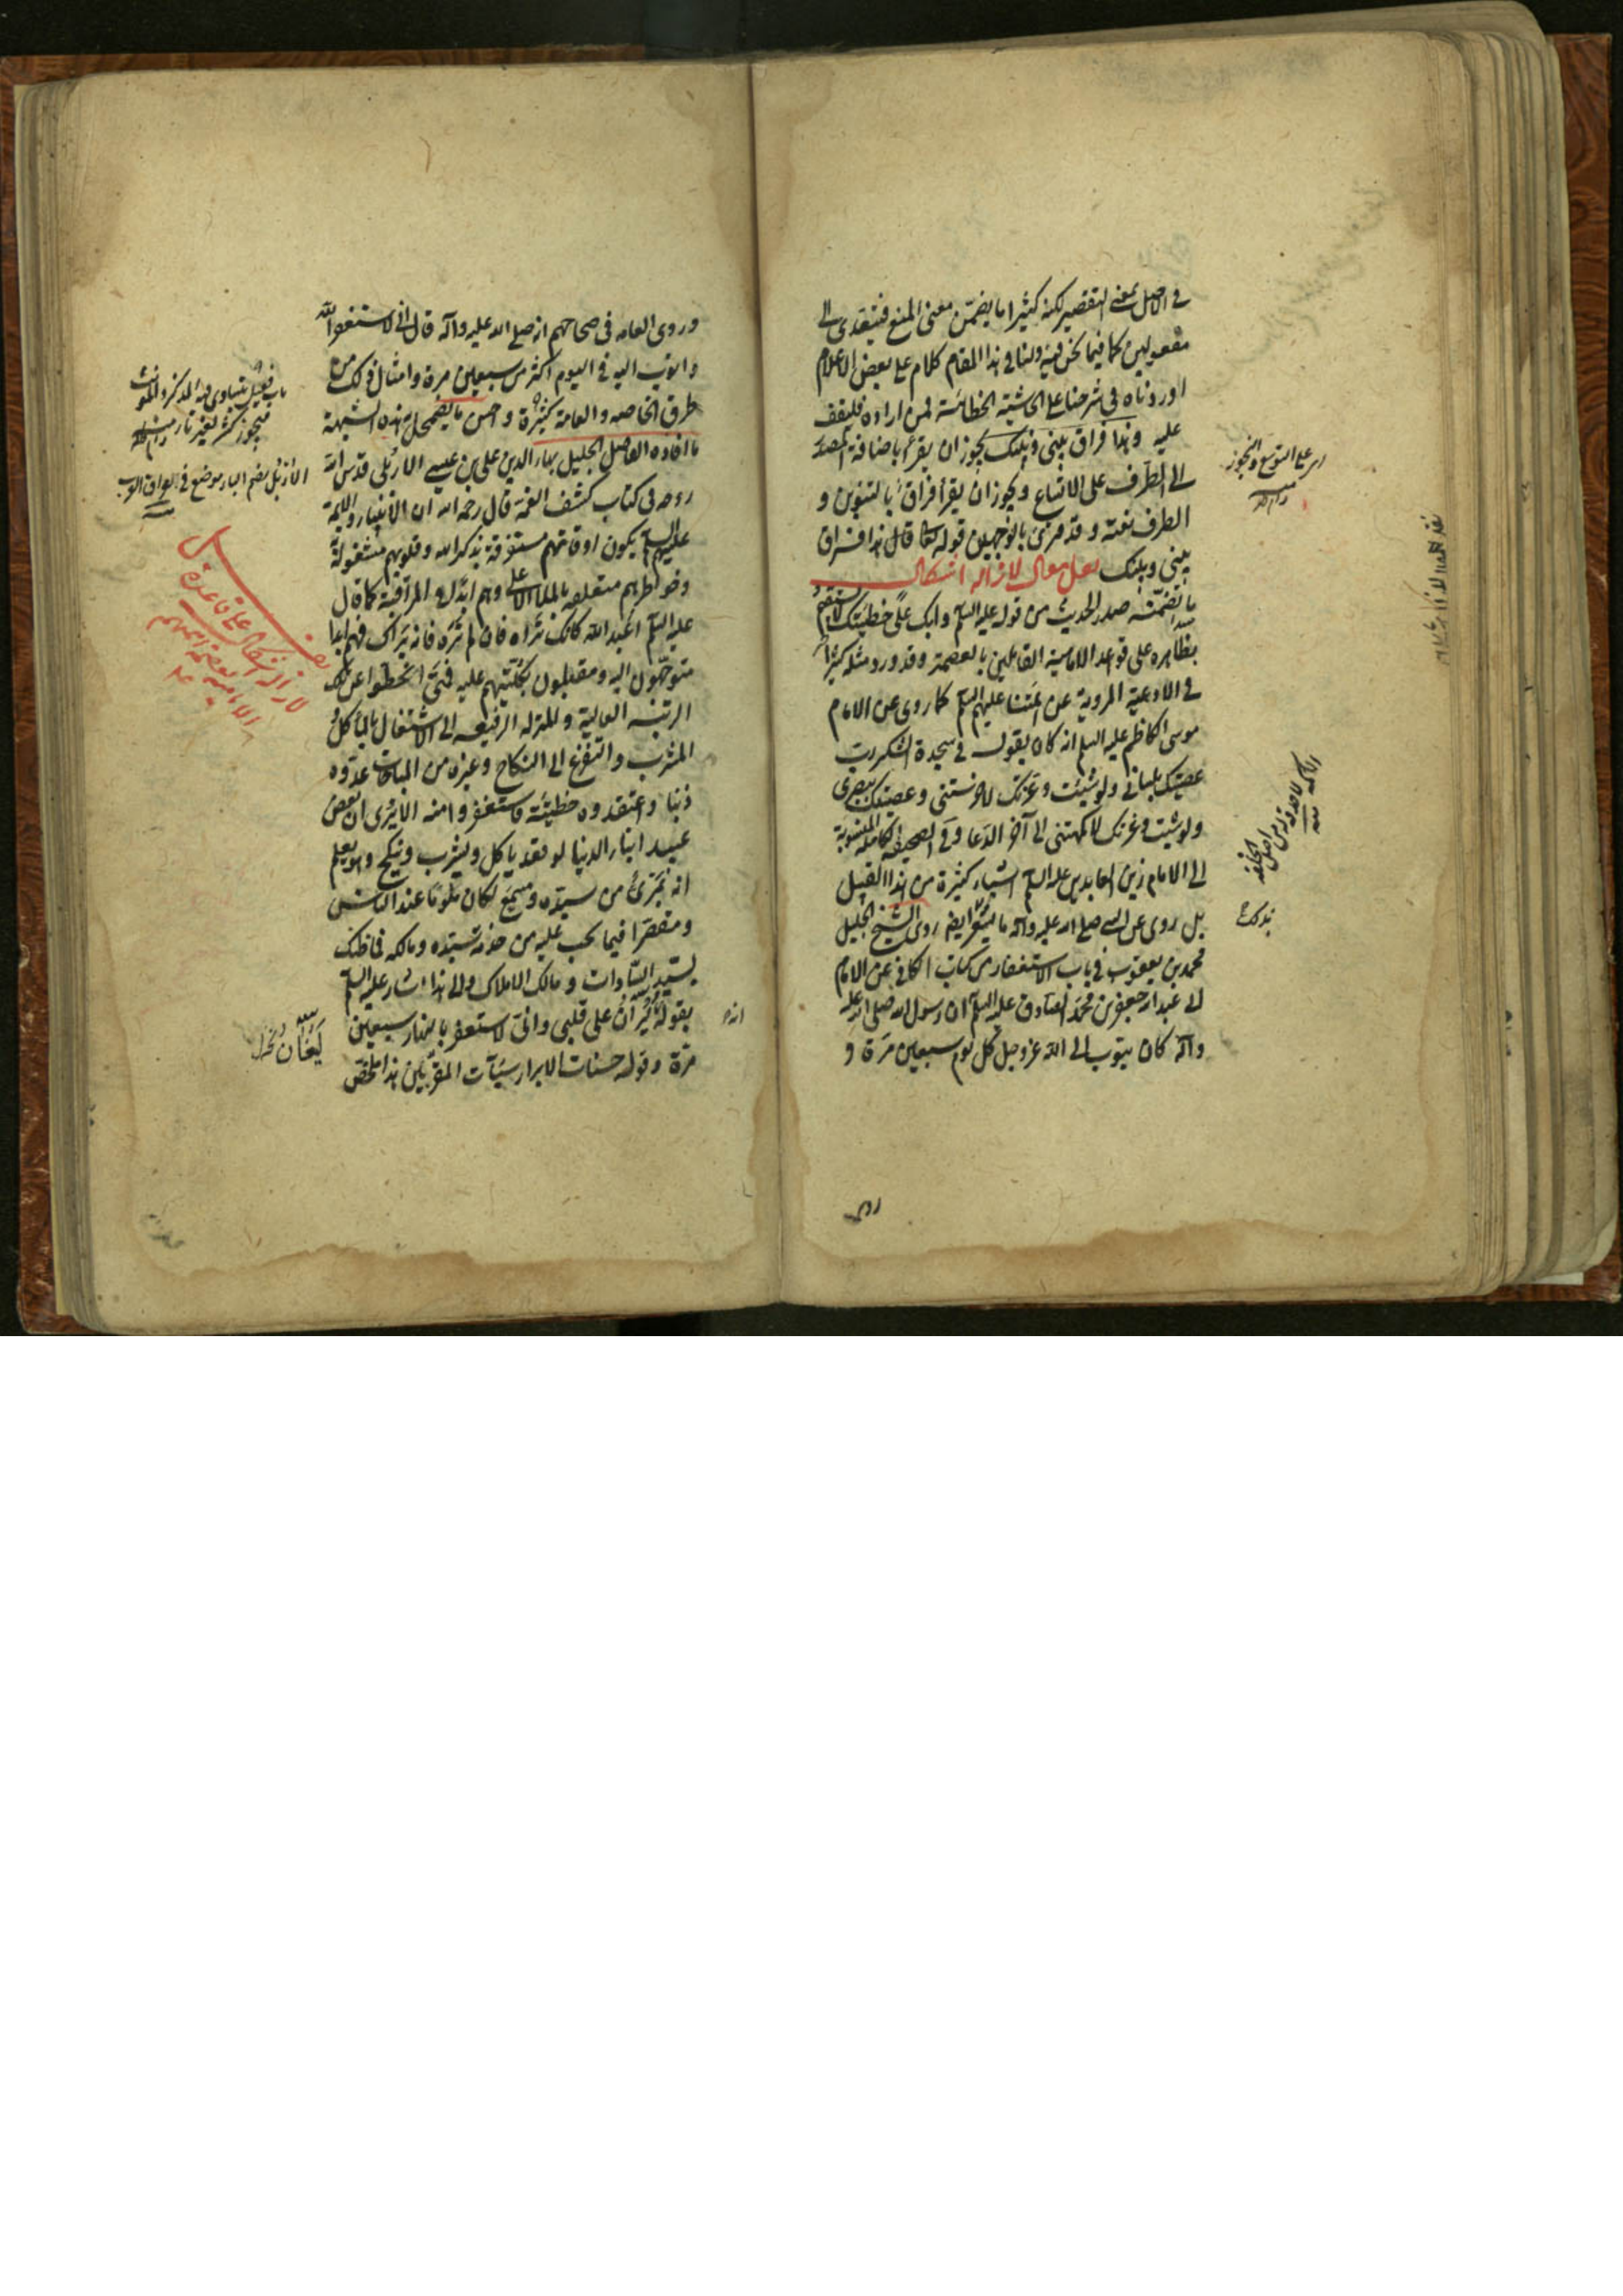 في الاصل بمعنى التقصير لكنه كثيرا ما يضمن معنى المنع فيتعدى الى
مفعولين كما فيما نحن فيه ولنا في هذا المقام كلام على بعض الاعلام
اوردناه في شرحنا على الحاشية الخطائية فمن اراده فليقف
عليه وهذا فراق بيني وبينك يجوز ان يقرأ باضافة المصدر
الى الظرف على الاتساع ويجوز ان يقرأ فراق بالتنوين و
الظرف نعته وقد قرئ بالوجهين قوله تعالى قال هذا فراق
بيني وبينك لازالة اشكال
ما تضمنه صدر الحديث من قوله عليه السلم وابك على خطيئتك لا يستقيم
بظاهره على قواعد الامامية القائلين بالعصمة وقد ورد مثله كثيرا
في الادعية المروية عن ائمتنا عليهم السلم كما روي عن الامام
موسى الكاظم عليه السلم انه كان يقول في سجدة الشكر رب
عصيتك بلساني ولو شئت وعزتك لاخرستني وعصيتك ببصري
ولو شئت وعزتك لاكمهتني الى آخر الدعا وفي الصحيفة الكاملة المنسوبة
الى الامام زين العابدين عليه السلم اشياء كثيرة من هذا القبيل
بل روي عن النبي صلى الله عليه وآله ايضا روى الشيخ الجليل
محمد بن يعقوب في باب الاستغفار من كتاب الكافي عن الامام
ابي عبد الله جعفر بن محمد الصادق عليه السلم ان رسول الله صلى الله عليه
وآله كان يتوب الى الله عز وجل كل يوم سبعين مرة و
روى
اي على التوسع والتجوز
الاكمه
وروى العامه في صحاحهم انه صلى الله عليه وآله قال اني لاستغفر الله
واتوب اليه في اليوم اكثر من سبعين مرة وامثال ذلك من
طرق الخاصه والعامة كثيرة واحسن ما يضمحل به هذه الشبهة
ما افاده الفاضل الجليل بهاء الدين علي بن عيسى الاربلي قدس الله
روحه في كتاب كشف الغمة قال رحمه الله ان الانبياء والايمة
عليهم السلم يكون اوقاتهم مستغرقة بذكر الله وقلوبهم مشغولة
وخواطرهم متعلقه بالملا الاعلى وهم ابدا في المراقبة كما قال
عليه السلم اعبد الله كانك تراه فان لم تره فانه يراك فهم ابدا
متوجهون اليه ومقبلون بكليتهم عليه فمتى انحطوا عن تلك
الرتبة العالية والمنزله الرفيعه الى الاشتغال بالمأكل و
المشرب والتفرغ الى النكاح وغيره من المباحات عدوه
ذنبا واعتقدوه خطيئة فاستغفروا منه الا يرى ان بعض
عبيد ابناء الدنيا لو قعد ياكل ويشرب وينكح وهو يعلم
انه بمرئ من سيده ومسمع لكان ملوما عند الناس
ومقصرا فيما يجب عليه من خدمة سيده ومالكه فما ظنك
بسيد السادات ومالك الاملاك والى هذا اشار عليه السلم
بقوله انه ليران على قلبي واني لاستغفر بالنهار سبعين
مرة وقوله حسنات الابرار سيئات المقربين هذا ملخص
باب فعيل يتساوى فيه المذكر والمؤنث
فيجوز كثير بغير تاء
الاربلي بضم الباء موضع في العراق العرب
لازالة اشكال على قاعدة
الامامية
ليغان